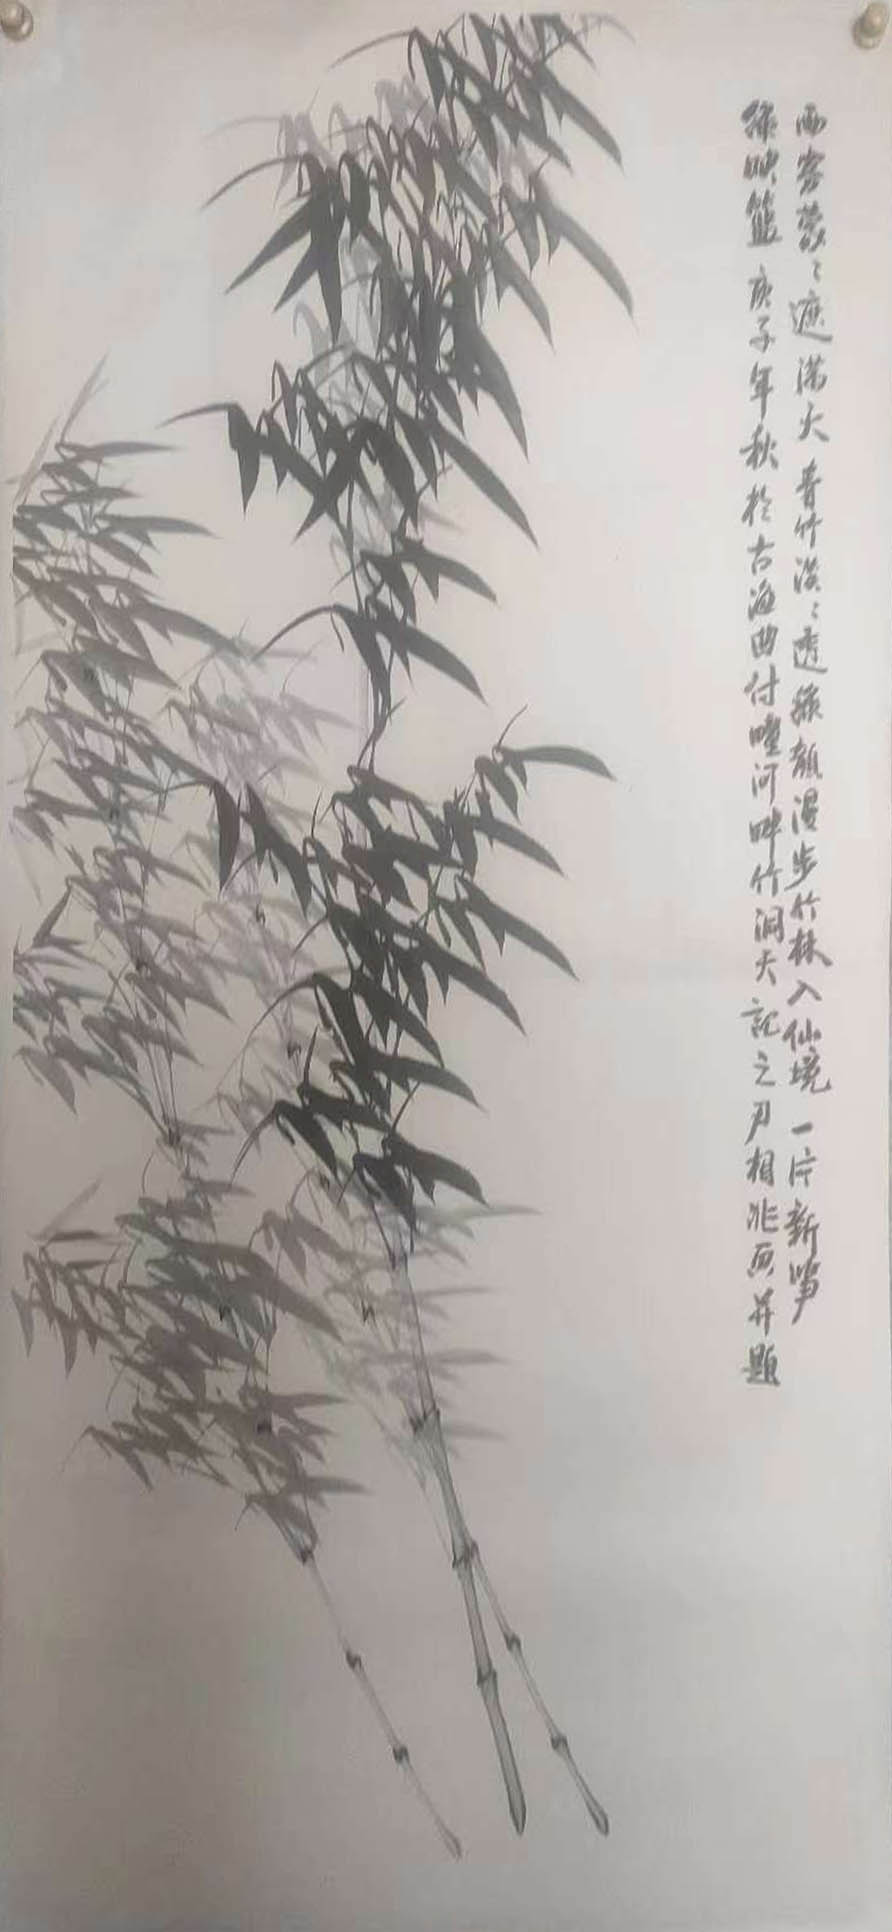 雨雾蒙々遮满天青竹淡々透绿颜漫步竹林入仙境一片新笋
绿映篮 庚子年秋於古海曲付疃河畔竹洞天記之尹相兆画并题